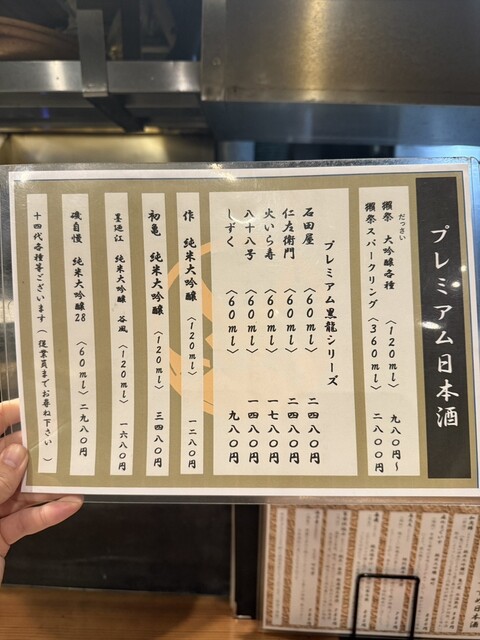 プレミアム日本酒
だっさい
獺祭 大吟醸各種 〈120ml〉 九八〇円〜
獺祭スパークリング 〈360ml〉 二八〇〇円
プレミアム黒龍シリーズ
石田屋 〈60ml〉 二四八〇円
仁左衛門 〈60ml〉 二四八〇円
火いら寿 〈60ml〉 一七八〇円
八十八号 〈60ml〉 一四八〇円
しずく 〈60ml〉 九八〇円
作 純米大吟醸 〈120ml〉 一二八〇円
初亀 純米大吟醸 〈120ml〉 三四八〇円
墨廼江 純米大吟醸 谷風 〈120ml〉 一六八〇円
磯自慢 純米大吟醸28 〈60ml〉 二九八〇円
十四代各種等ございます（従業員までお尋ね下さい）
日本酒